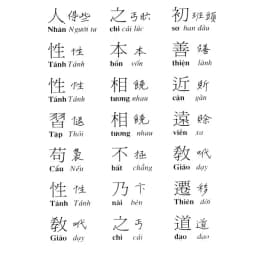 人 㝵些 之 丐 初 班頭
Nhân Người ta chi cái lúc sơ ban đầu
性 性 本 本 善 繕
Tánh Tánh bổn vốn thiện lành
性 性 相 饒 近
Tánh Tánh tương nhau cận gần
習 相 饒 遠 賒
Tập Thói tương nhau viễn xa
苟 裊 不 極 敎 𠰺
Cẩu Nếu bất chẳng Giáo dạy
性 性 乃 卞 遷 移
Tánh Tánh nãi bèn Thiên dời
敎 𠰺 之 丐 道 道
Giáo dạy chi cái đạo đạo